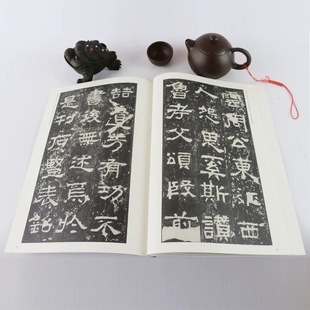 雲周公東西
人怨思奚斯讚
魯考父頌殷前
喆遺芳有功不
書後無述焉於
是刊石竪表銘